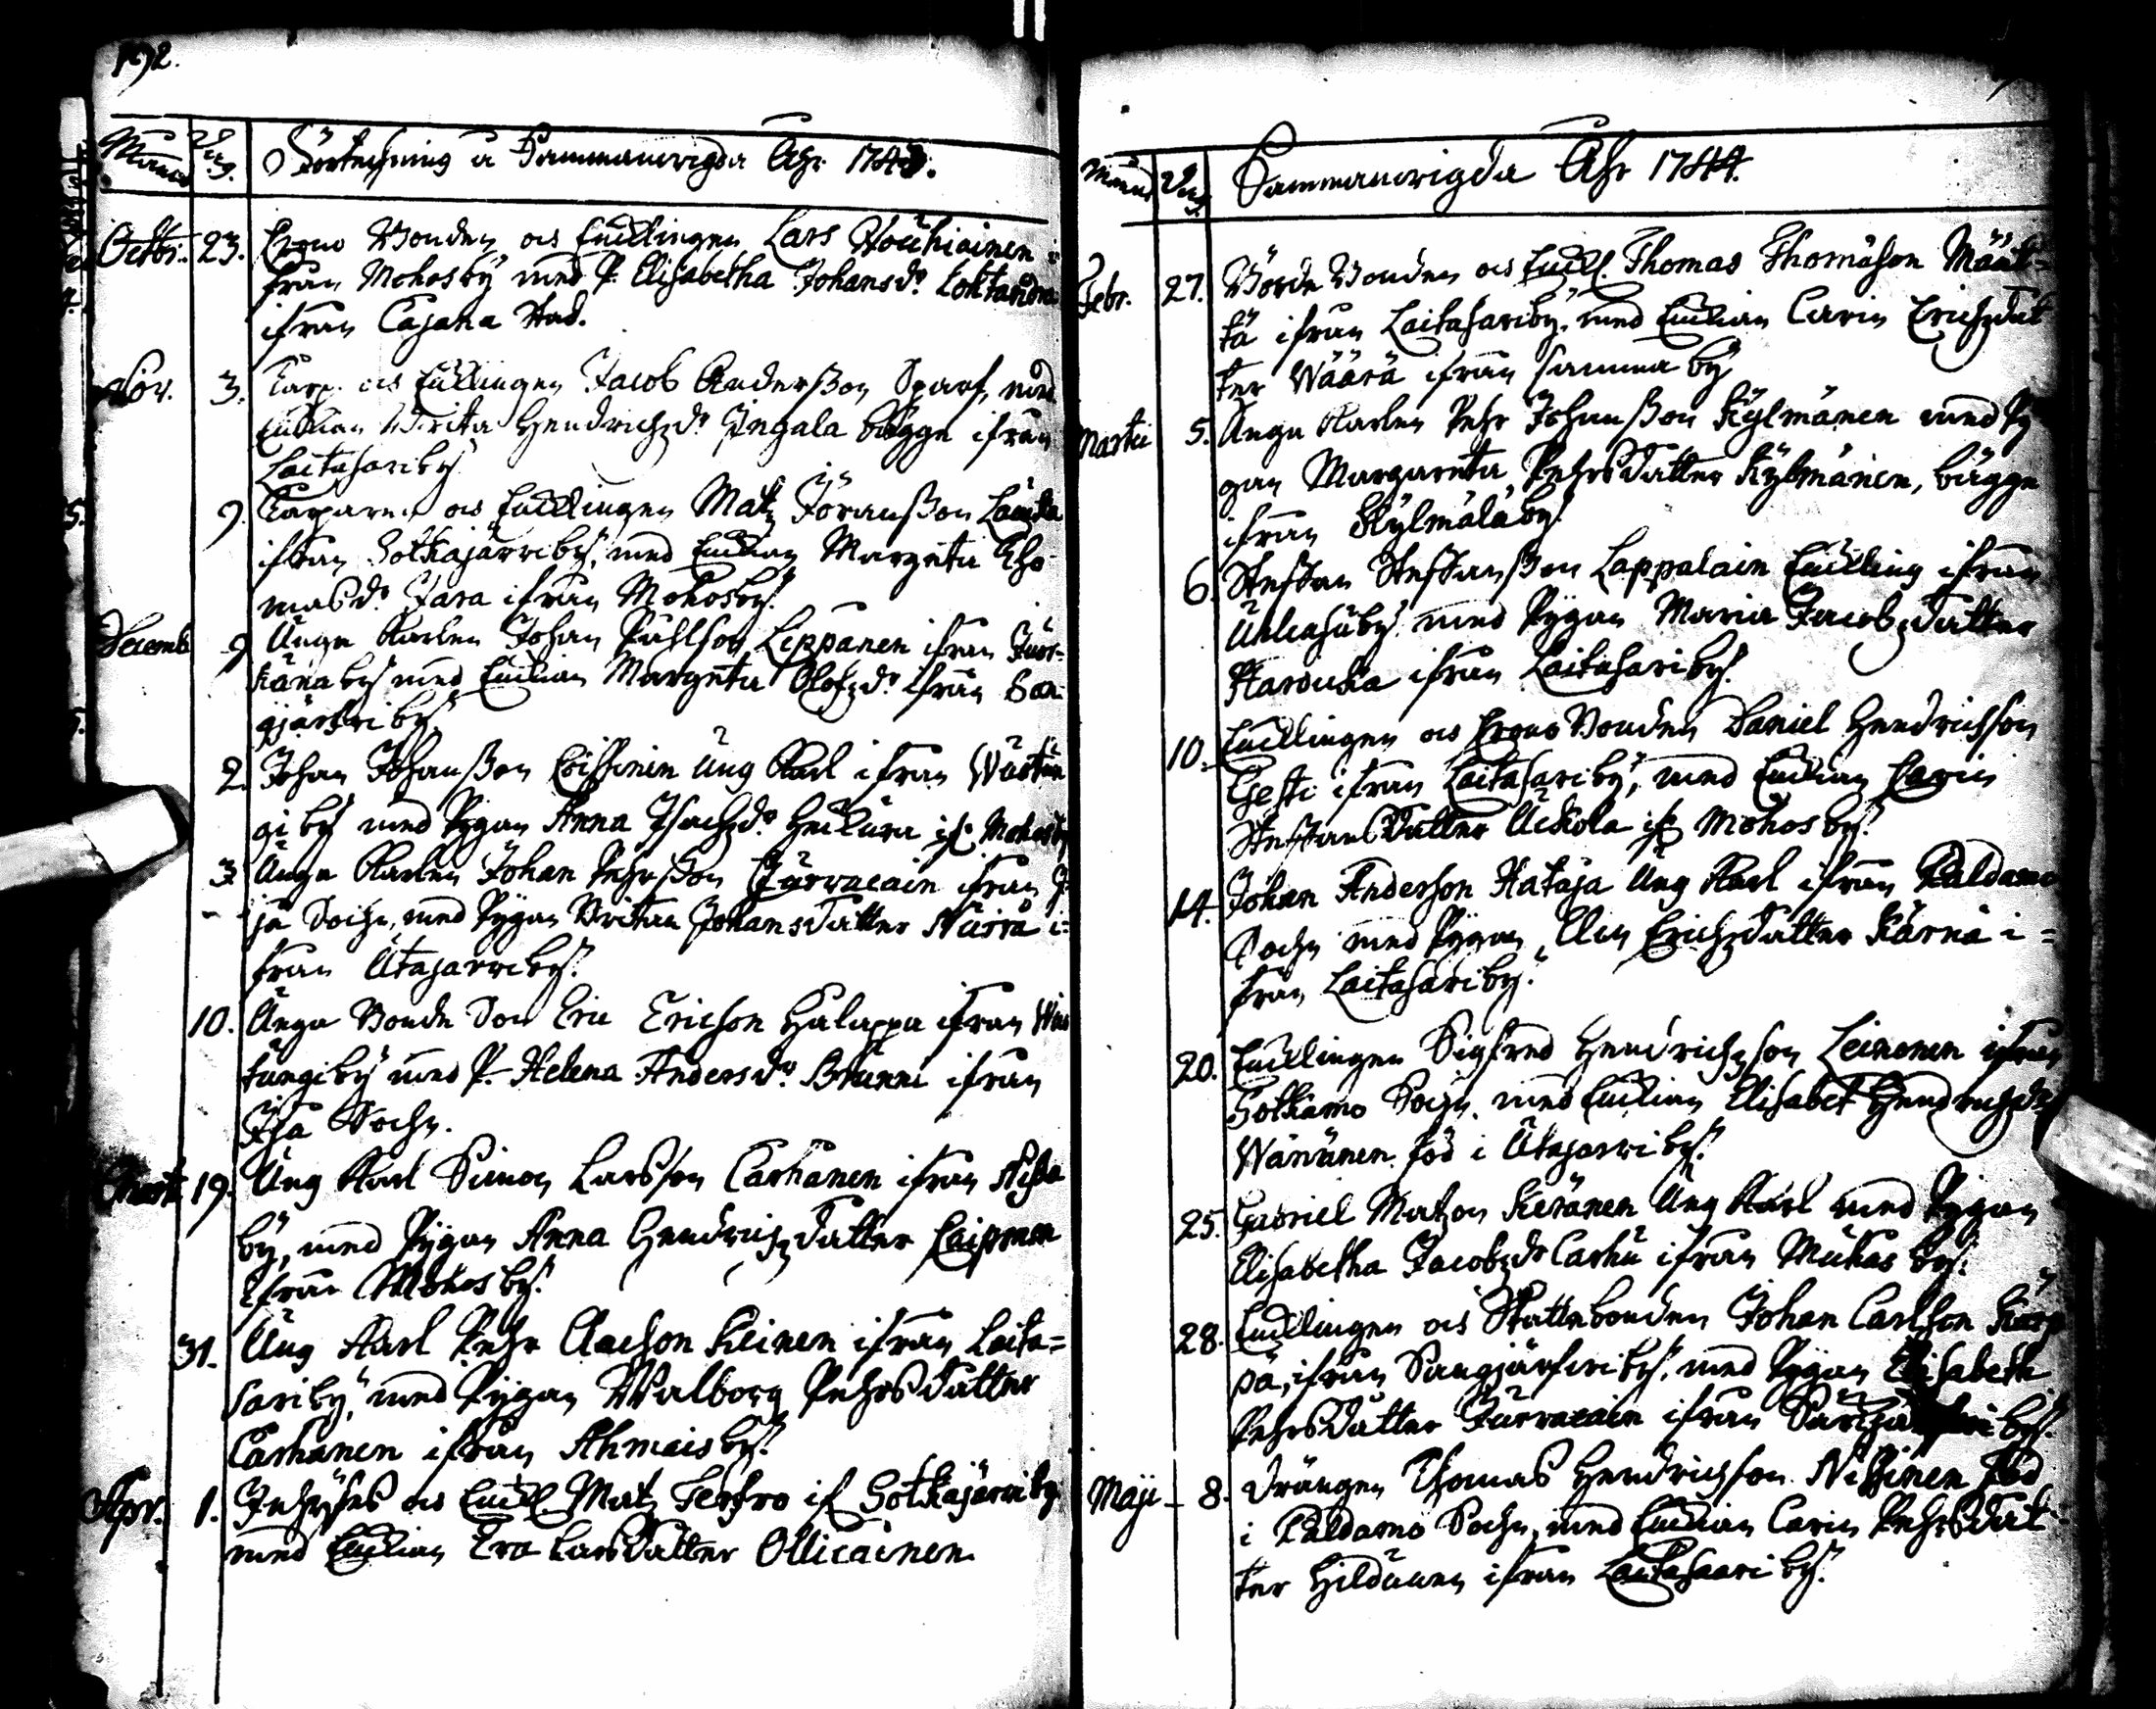 192.
Månad Dag. Förtechning å Sammanwigda Åhr 1743.
Octbr. 23. Crono Bonden os Encklingen Lars Wouhiainen i
från Mohosby med P. Elisabetha Johansdr
ifrån Cajana Stad.
Nov. 3. Karp. os Encklingen Jacob Anderßon Sparf, med
Enckian Brita Hendrichzdr Ingala bägge ifrån
Laitasariby.
9. os Encklingen Matz Jöranßon
ifrån Sotkajärwiby, med Enckian Margeta Tho-
masdr Jara ifrån Mohosby.
Decemb. 9 Unga Karlen Johan Påhlson Leppanen ifrån
by med Enckian Margeta Olofzdr ifrån San-
gjärfwiby.
2. Johan Johanßon Ung Karl ifrån Wuotun
giby med Pygan Anna Isachzdr Heikura if. Mohosby
3. Unga Karlen Johan Pehrßon Jurwacain ifrån I-
jå Sochn, med Pygan Britha Johansdatter Nuira i-
från Utajarwiby.
10. Unga Bonde Son Eric Ericson Halappa ifrån Wuo
tungiby med P. Helena Andersdr Brunni ifrån
Ijå Sochn.
19. Ung Karl Simon Larsson Carhanen ifrån
by, med Pygan Anna Hendrichzdatter
ifrån Mohosby.
31. Ung Karl Pehr Keinen ifrån Laita=
sariby, med Pygan Walborg Pehrsdatter
Carhanen ifrån Ahmaisby.
Apr. 1. os Enckl. Matz Terfwo if. Sotkajärwiby
med Enckian Eva Larsdatter Ollicainen.
Månd Dag. Sammanwigda Åhr 1744.
Febr. 27. Bonden os Enckl. Thomas Thomason Määt=
tä ifrån Laitasariby, med Enckian Carin Erichzdat
ter Wäärä ifrån samma by
Martii 5. Unga Karlen Pehr Johanßon Kylmänen med Py
gan Margareta Pehrsdatter Kylmänen, bägge
ifrån Kylmäläby.
6. Steffan Steffanßon Lappalain Enckling ifrån
Uhleasuby med Pygan Maria Jacobzdatter
Harouka ifrån Laitasariby.
10. Encklingen os Crono Bonden Daniel Hendrichson
ifrån Laitasariby, med Enckian Carin
Steffansdatter Uckola if. Mohosby.
14. Johan Anderson Hataja Ung Karl ifrån Paldamo
Sochn med Pygan Elin Erichzdatter Kärnä i=
från Laitasariby.
20. Encklingen Sigfred Hendrichzson Leinonen ifrån
Sotkamo Sochn, med Enckian Elisabet Hendrichzdr
Wänänen född i Utajarwiby.
25. Gabriel Matzon Keränen Ung Karl med Pygan
Elisabetha Jacobzdr Carhu ifrån Muhos by.
28. Encklingen os Skattebonden Johan Carlson Kärp
pä, ifrån Sangjärfwiby, med Pygan Elisabeth
Pehrsdatter Jurwacain ifrån by.
Maji 8. Drängen Thomas Hendrichson Nissinen född
i Paldamo Sochn, med Enckian Carin Pehrsdat
ter Heldunen ifrån Laitasaari by.